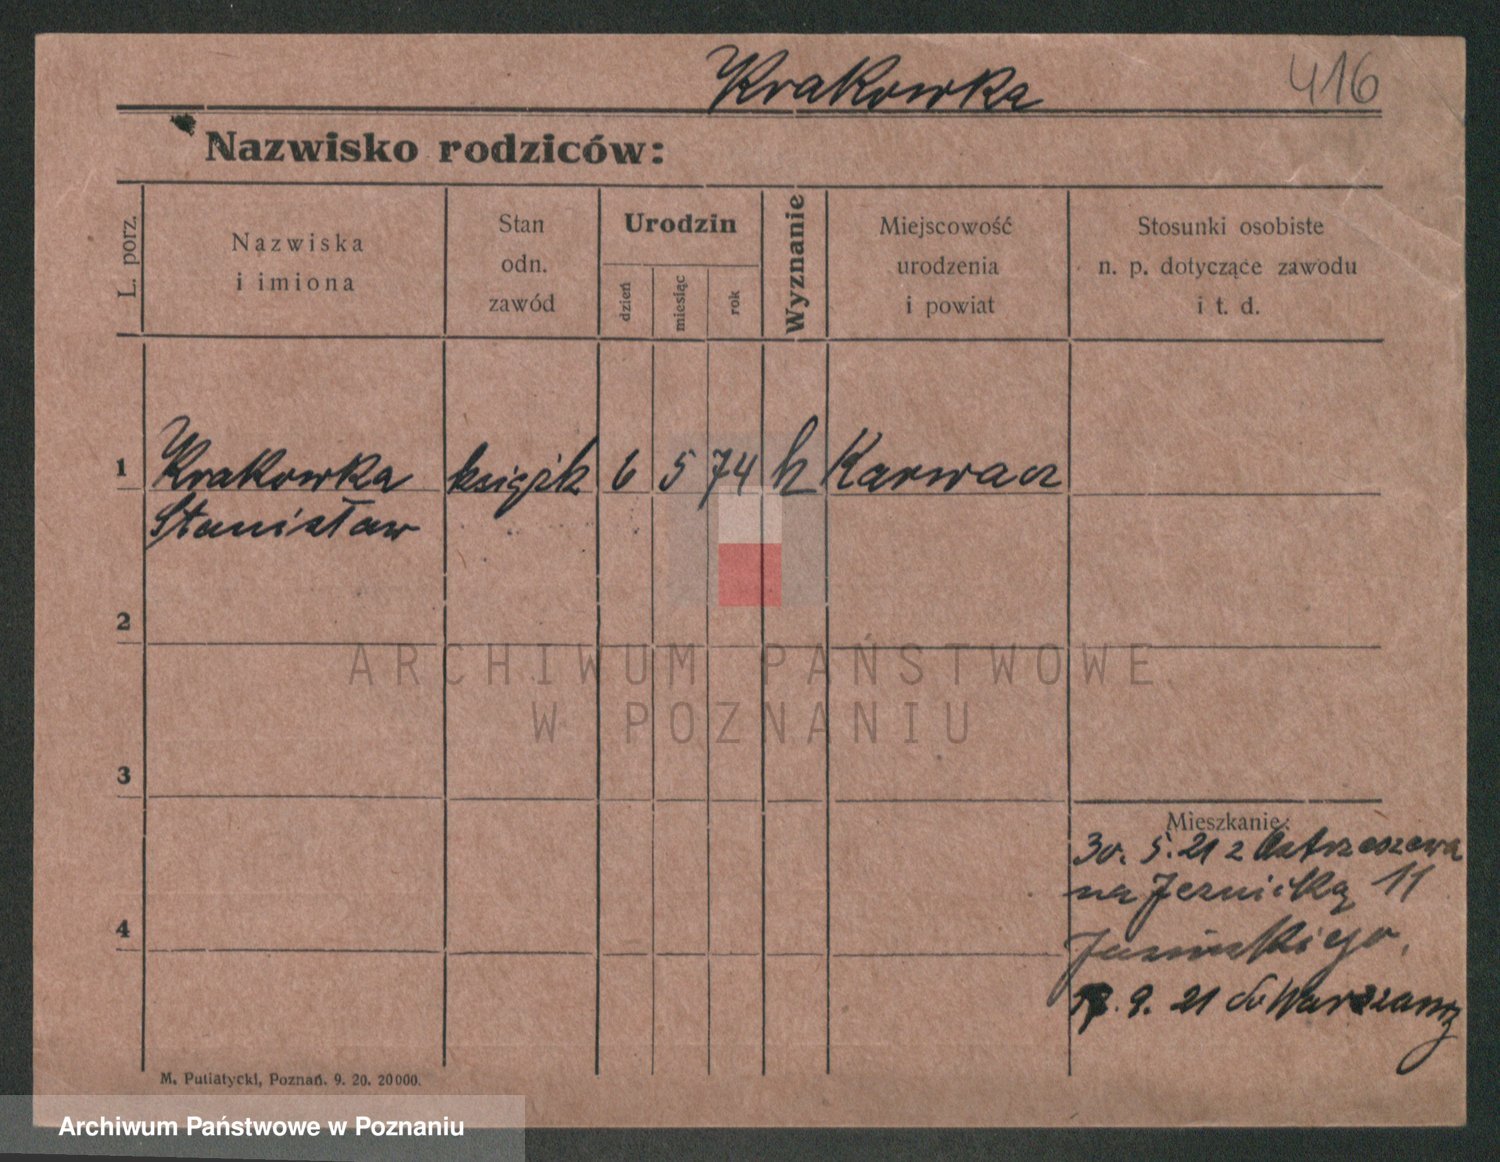 Krakowka 416
Nazwisko rodziców:
L. porz.
Nazwiska
i imiona
Stan
odn.
zawód
Urodzin
dzień
miesiąc
rok
Wyznanie
Miejscowość
urodzenia
i powiat
Stosunki osobiste
n. p. dotyczące zawodu
i t. d.
1 Krakowka 6 5 74 k Karwacz
Stanisław
2
3
4
Mieszkanie:
30. 5. 21 z Ostrzeszowa
na 11
9. 21 do Warszawy
M. Putiatycki, Poznań. 9. 20. 20000.
ARCHIWUM PAŃSTWOWE
W POZNANIU
Archiwum Państwowe w Poznaniu